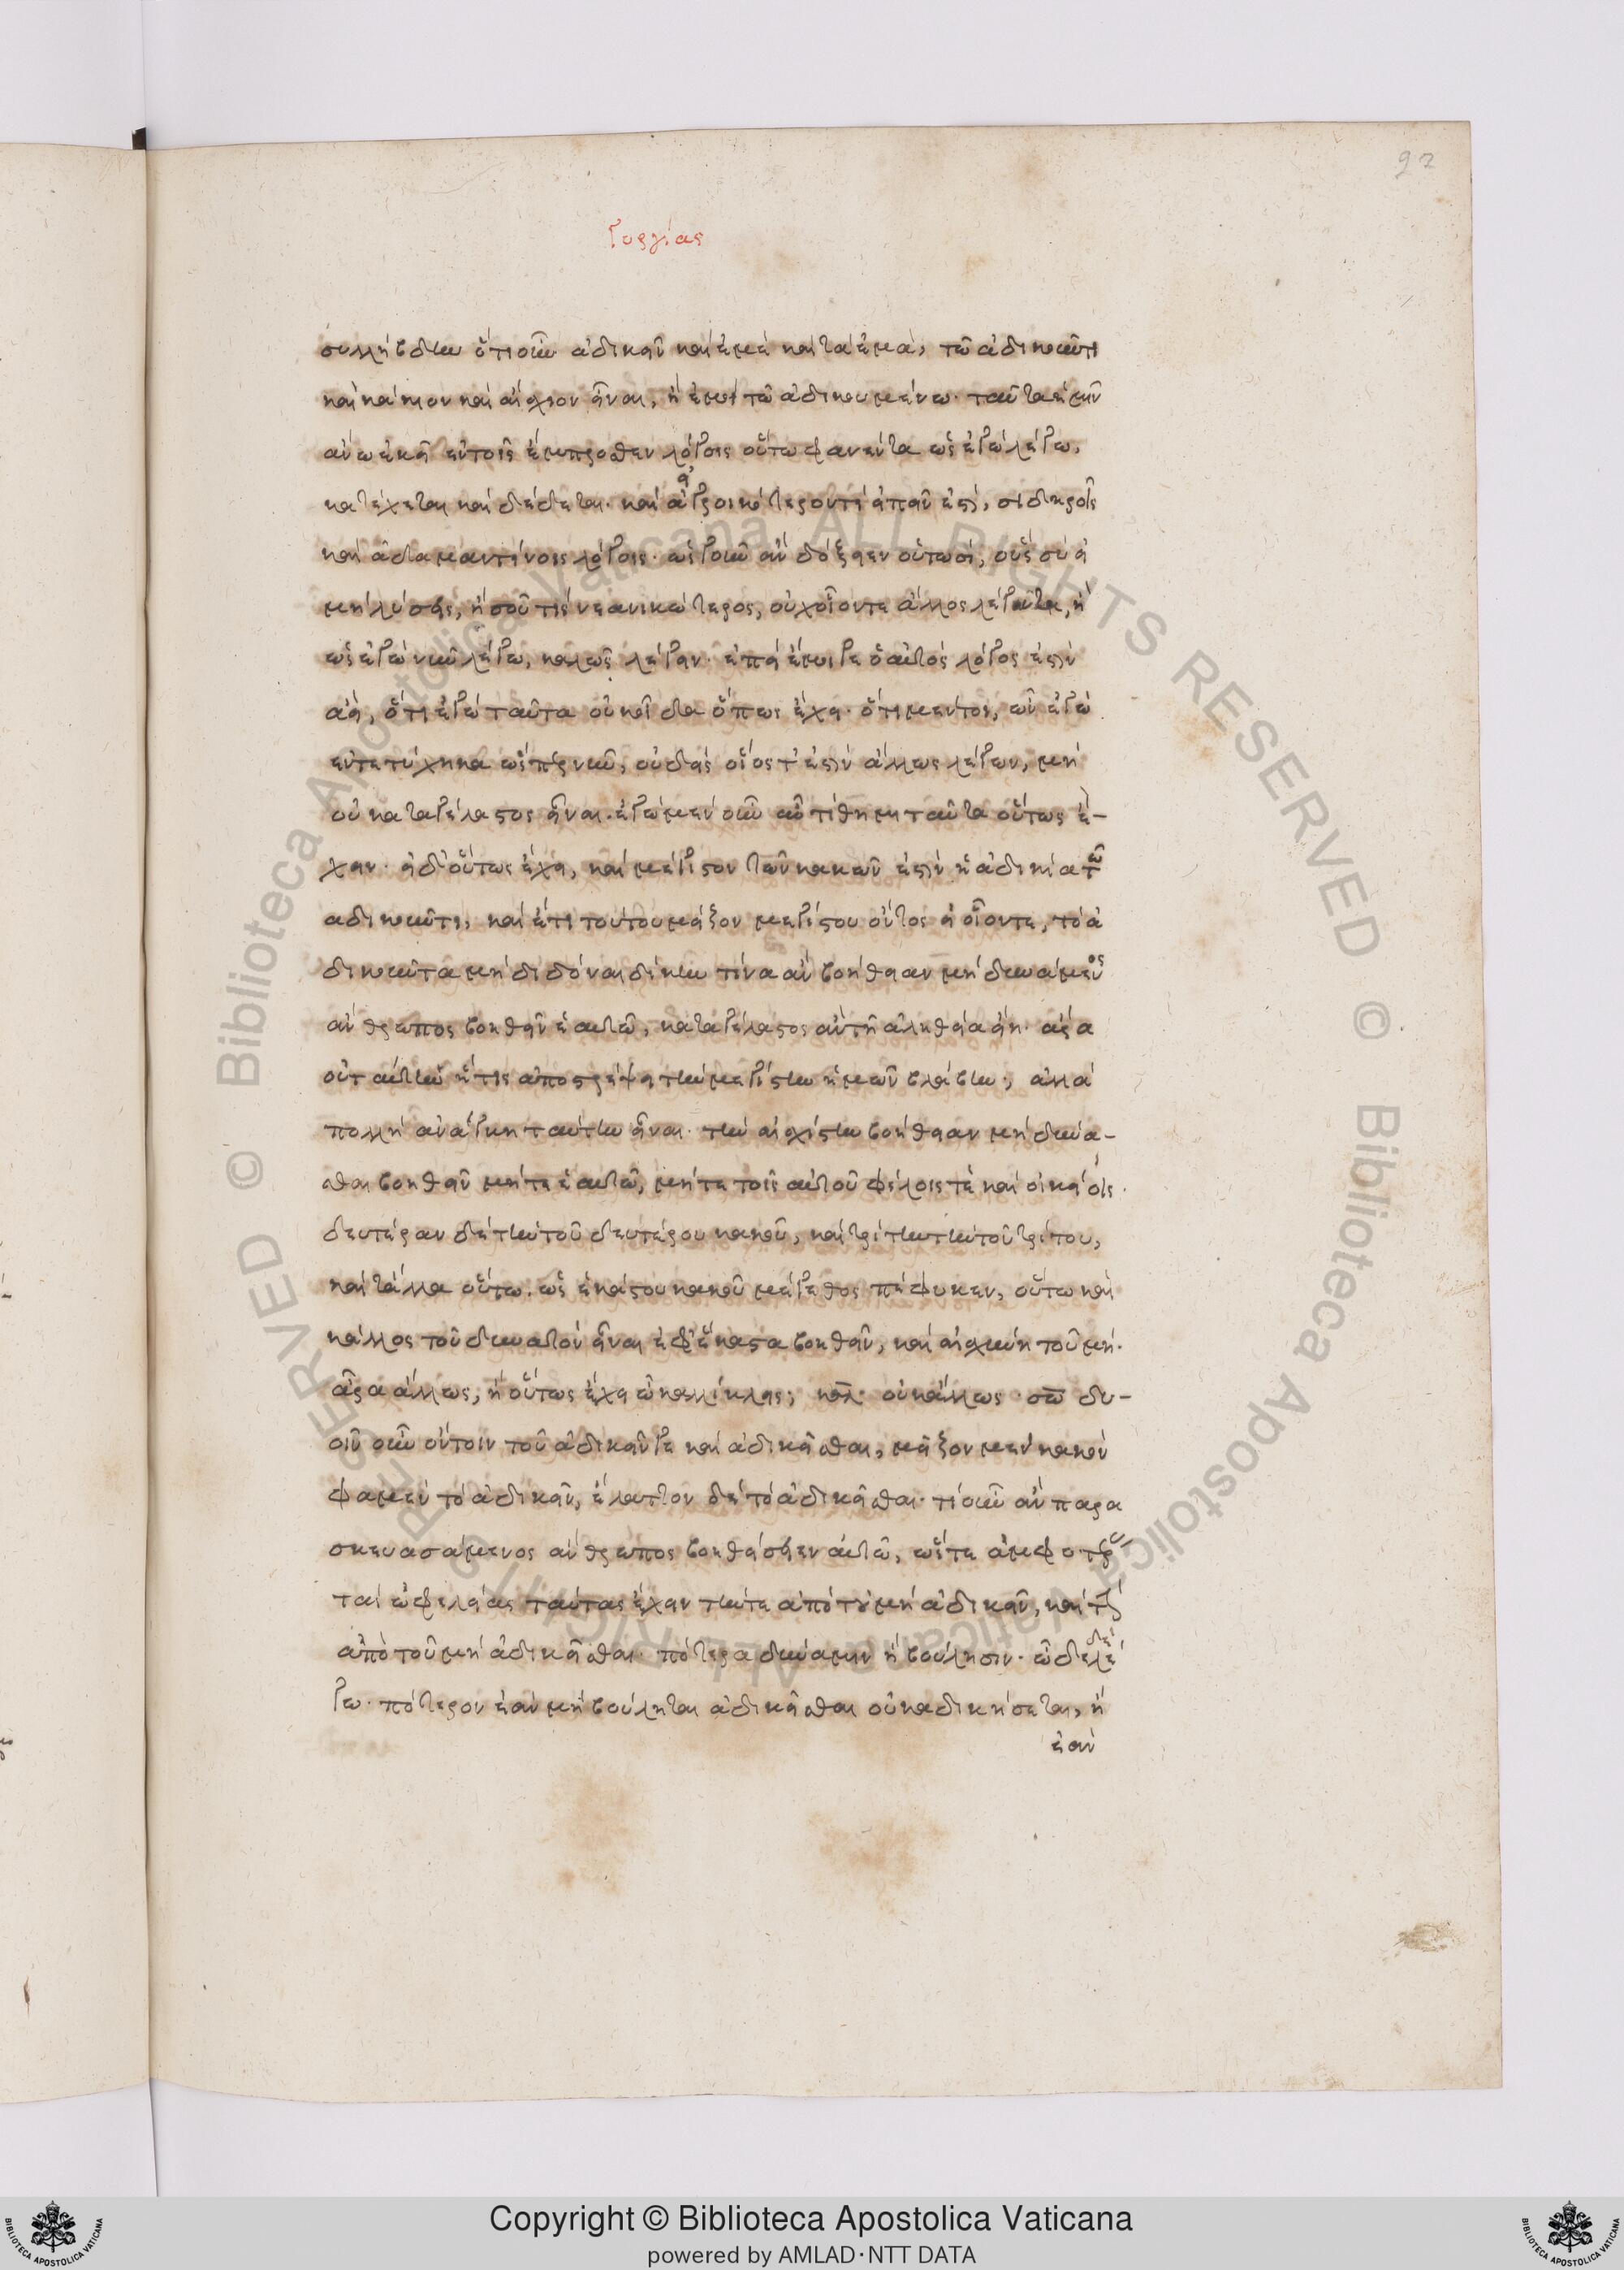 92
Γοργίας
συλλήβδην ὁτιοῦν ἀδικεῖν καὶ ἐμὲ καὶ τὰ ἐμὰ, τῶ ἀδικοῦντι
καὶ κάκιον καὶ αἴσχιον εἶναι, ἢ ἐμοὶ τῶ ἀδικουμένω. ταῦτα ἡμῖν
ἄνω ἐκεῖ ἐν τοῖς ἔμπροσθεν λόγοις οὕτω φανέντα ὡς ἐγὼ λέγω,
κατέχεται καὶ δέδεται. καὶ εἰ ἀγροικότερόν τι εἰπεῖν ἐστὶ, σιδηροῖς
καὶ ἀδαμαντίνοις λόγοις. ὡς γοῦν ἂν δόξειεν οὑτωσὶ, οὓς σὺ εἰ
μὴ λύσεις, ἢ σοῦ τις νεανικώτερος, οὐχ οἷόν τε ἄλλος λέγοντα, ἢ
ὡς ἐγὼ νῦν λέγω, καλῶς λέγειν. ἐπεὶ ἔμοιγε ὁ αὐτὸς λόγος ἐστὶν
ἀεὶ, ὅτι ἐγὼ ταῦτα οὐκ οἶδα ὅπως ἔχει. ὅτι μέντοι, ὧν ἐγὼ
ἐντετύχηκα ὥσπερ νῦν, οὐδεὶς οἷός τ' ἐστὶν ἄλλως λέγων, μὴ
οὐ καταγέλαστος εἶναι. ἐγὼ μὲν οὖν αὖ τίθημι ταῦτα οὕτως ἔ-
χειν. εἰ δὲ οὕτως ἔχει, καὶ μέγιστον τῶν κακῶν ἐστὶν ἡ ἀδικία τῶ
ἀδικοῦντι, καὶ ἔτι τούτου μεῖζον μεγίστου ὄντος εἰ οἷόν τε, τὸ ἀ
δικοῦντα μὴ διδόναι δίκην τίνα ἂν βοήθειαν μὴ δυνάμενος
ἄνθρωπος βοηθεῖν ἑαυτῶ, καταγέλαστος ἂν τῆ ἀληθείᾳ εἴη. ἆρα
οὐ ταύτην ἥτις ἀποστρέψει τὴν μεγίστην ἡμῶν βλάβην; ἀλλὰ
πολλὴ ἀνάγκη ταύτην εἶναι. τὴν αἰσχίστην βοήθειαν μὴ δύνα-
σθαι βοηθεῖν μήτε ἑαυτῶ, μήτε τοῖς αὑτοῦ φίλοις τὲ καὶ οἰκείοις.
δευτέραν δὲ τὴν τοῦ δευτέρου κακοῦ, καὶ τρίτην τὴν τοῦ τρίτου,
καὶ τἆλλα οὕτω. ὡς ἑκάστου κακοῦ μέγεθος πέφυκεν, οὕτω καὶ
κάλλος τοῦ δυνατὸν εἶναι ἐφ' ἕκαστα βοηθεῖν, καὶ αἰσχύνη τοῦ μή.
ἆρα ἄλλως, ἢ οὕτως ἔχει ὦ καλλίκλεις; καλ. οὐκ ἄλλως. σω δυ-
οῖν οὖν ὄντοιν τοῦ ἀδικεῖν γε καὶ ἀδικεῖσθαι, μεῖζον μὲν κακὸν
φαμὲν τὸ ἀδικεῖν, ἔλαττον δὲ τὸ ἀδικεῖσθαι. τί οὖν ἂν παρα
σκευασάμενος ἄνθρωπος βοηθήσειεν αὑτῶ, ὥστε ἀμφοτέρας
τὰς ὠφελείας ταύτας ἔχειν τήν τε ἀπὸ τοῦ μὴ ἀδικεῖν, καὶ τὴν
ἀπὸ τοῦ μὴ ἀδικεῖσθαι. πότερα δύναμιν ἢ βούλησιν. ὧδε δὲ λέ
γω. πότερον ἐὰν μὴ βούληται ἀδικεῖσθαι οὐκ ἀδικήσεται, ἢ
ἐὰν
© Biblioteca Apostolica Vaticana ALL RIGHTS RESERVED © Biblioteca Apostolica Vaticana ALL RIGHTS RESERVED
Copyright © Biblioteca Apostolica Vaticana
powered by AMLAD·NTT DATA
BIBLIOTECA APOSTOLICA VATICANA
BIBLIOTECA APOSTOLICA VATICANA